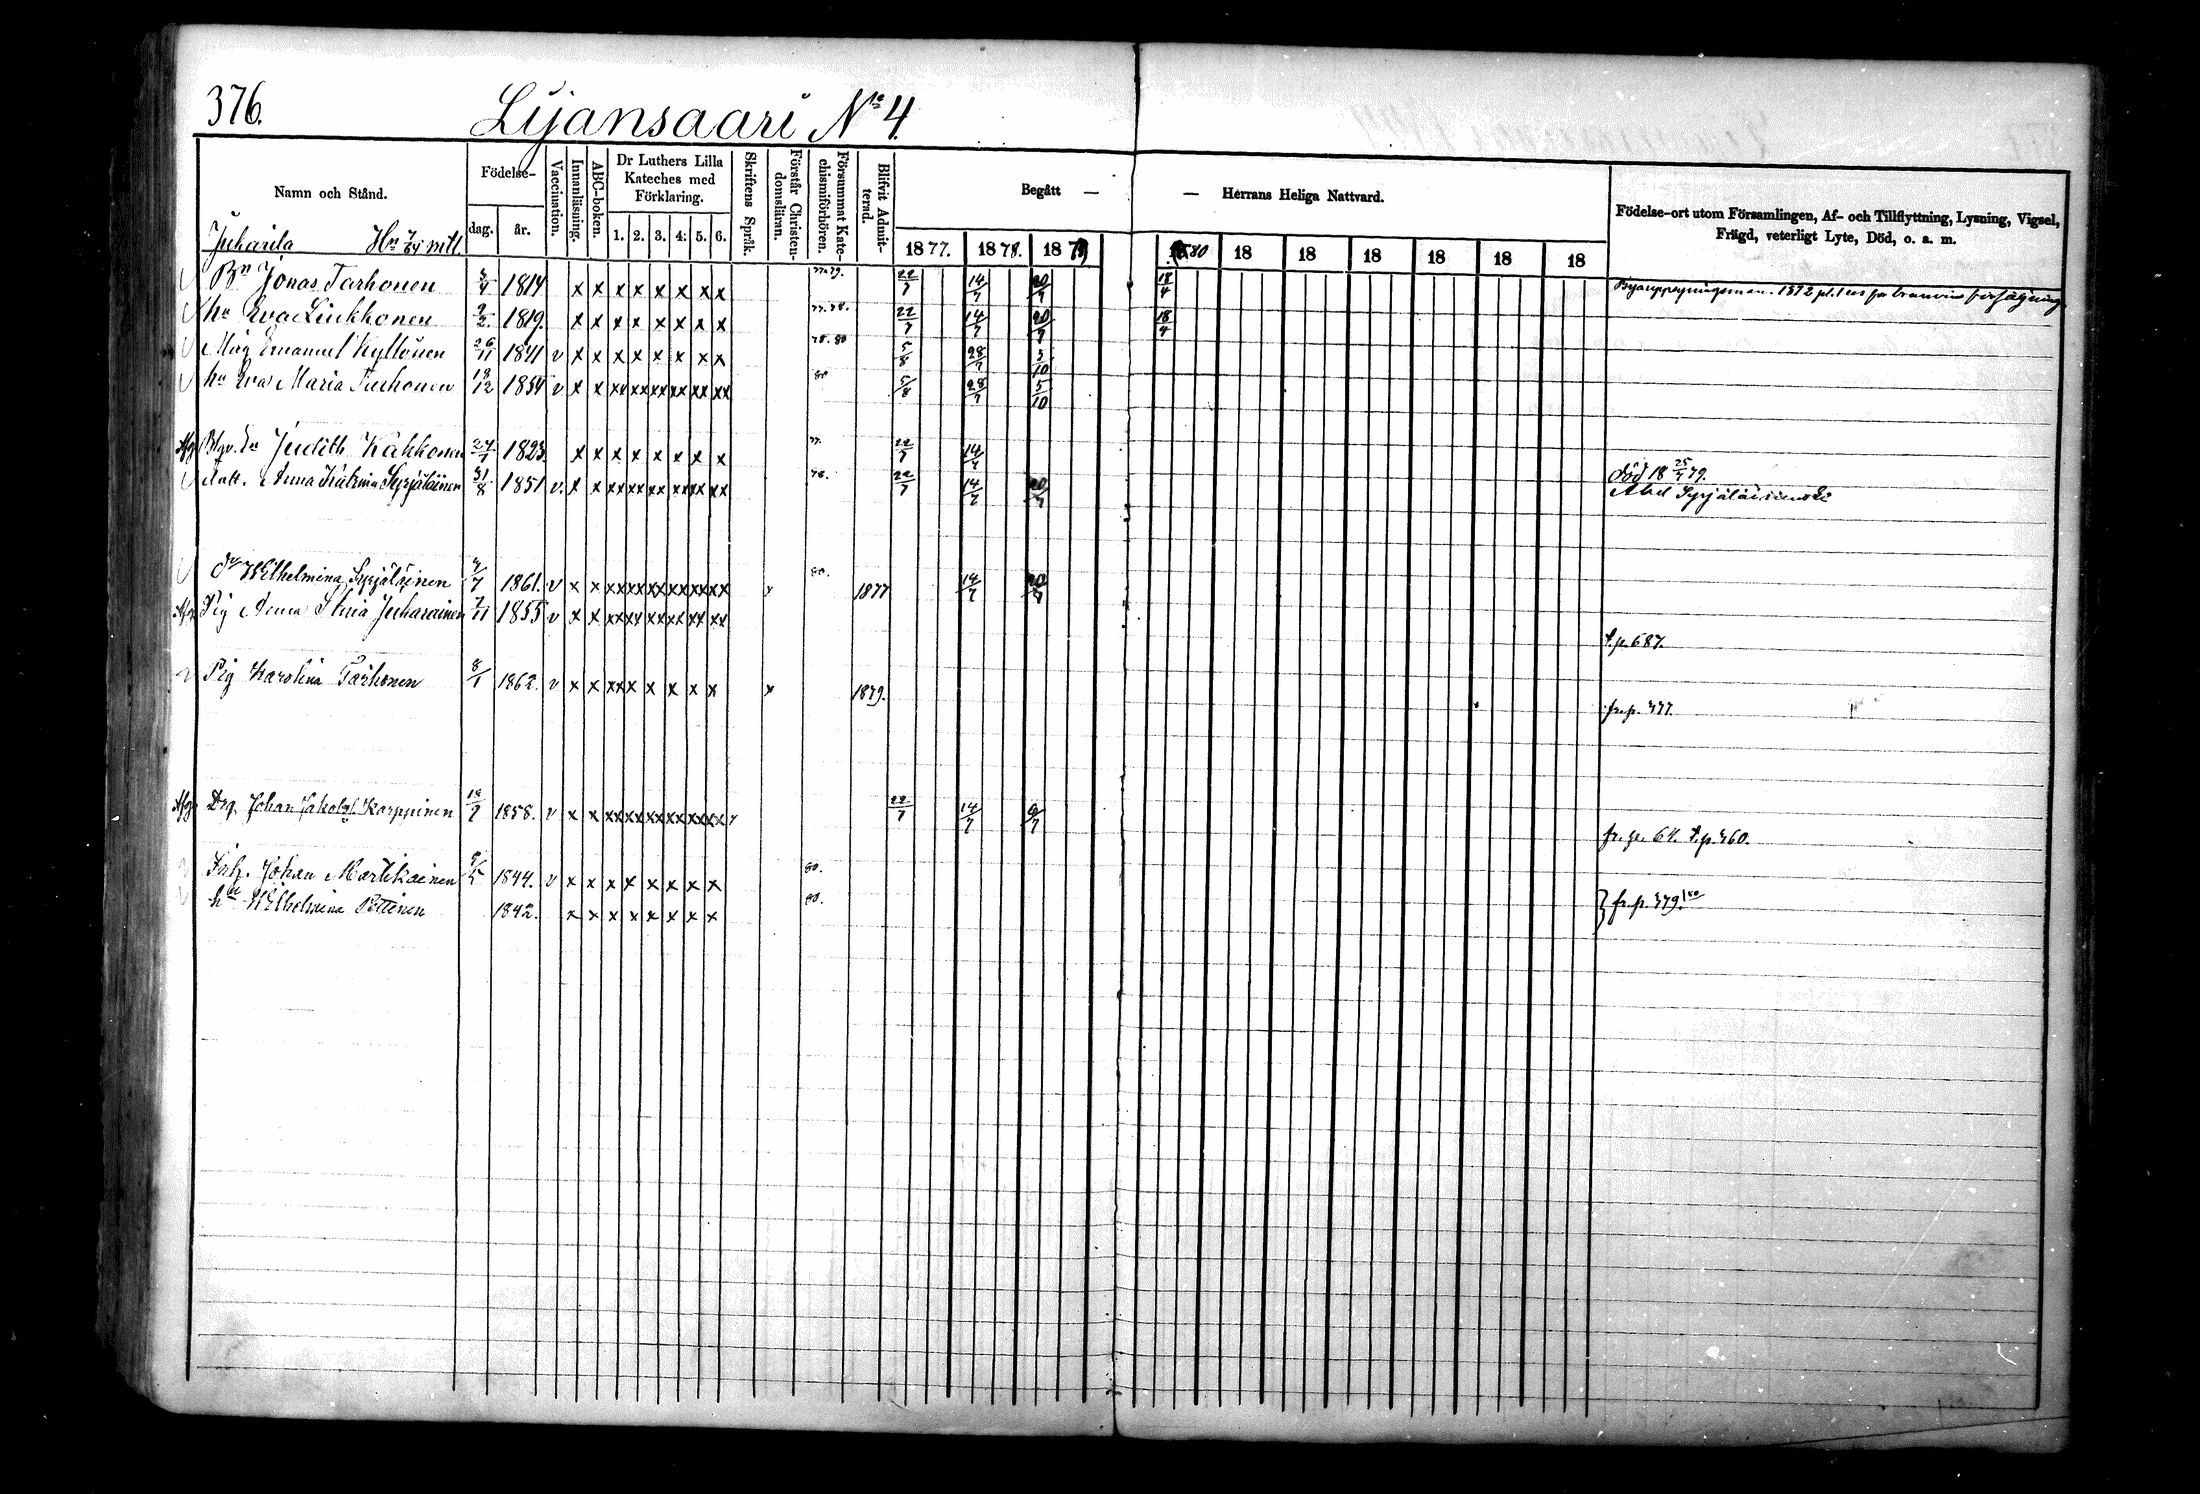 376.
Lijansaari No 4.
Namn och Stånd.
Födelse-
dag.
år.
Vaccination.
Innanläsning.
ABC-boken.
Dr Luthers Lilla
Kateches med
Förklaring.
1. 2. 3. 4. 5. 6.
Skriftens Språk.
Förstår Christen-
domsläran.
Försummat Kate-
chismiförhören.
Blifvit Admit-
terad.
Begått — — Herrans Heliga Nattvard.
1877. 1878. 1879 1880 18 18 18 18 18 18
Födelse-ort utom Församlingen, Af- och Tillflyttning, Lysning, Vigsel,
Frägd, veterligt Lyte, Död, o. a. m.
Juharila mtl.
Bn Jonas Tarhonen 1814 x x x x x x x x 22/7 14/7 20/7 18/4
hu Eva Liukkonen 9/2 1819. x x x x x x x x 77.78. 22/7 14/7 20/7 18/4
Måg Emanuel Kyllönen 26/11 1841 v x x x x x x x x 78.80 5/8 28/7 5/10
hu Eva Maria Tarhonen 18/12 1854 v x x xx xx xx xx xx xx 80 5/8 28/7 5/10
Afg Judith Kähkönen 24/7 1823 x x x x x x x x 77. 22/7 14/7 död 18 25/4 79.
dott. Anna Katrina Syrjäläinen 31/8 1851 v. x x xx xx xx xx xx xx 78. 22/7 14/7 20/7 Abel Syrjäläinen
dr Wilhelmina Syrjäläinen 1861. v x x xx xx xx xx xx xx 80. 1877 14/7 20/7
Afg Pig Anna Stina Juharainen 7/11 1855 v x x xx xx xx xx xx xx t.p. 687.
Pig Karolina Tarhonen 8/1 1862. v x x xx x x x x x x 1879. fr.p. 377.
Afg Drg Johan Jakob Karppinen 1858. v x x xx xx xx xx xx xx 22/7 14/7 fr. p. 64. t.p. 360.
Inh. Johan Martikainen 1844. v x x x x x x x x 80.
hu Wilhelmina 1842. x x x x x x x x 80. } fr.p. 379.